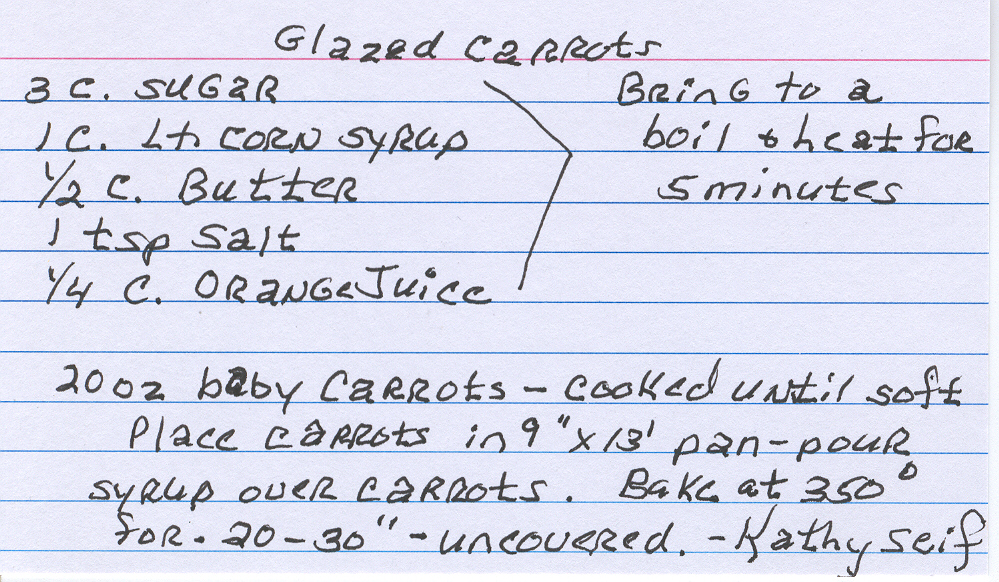 Glazed Carrots
3 C. Sugar
1 C. Lt Corn Syrup
1/2 C. Butter
1 tsp Salt
1/4 C. Orange Juice
Bring to a
boil & heat for
5 minutes
20 oz baby Carrots - cooked until soft
Place carrots in 9" x 13' pan - pour
syrup over carrots. Bake at 350°
for. 20-30" - uncovered. - Kathy Seif